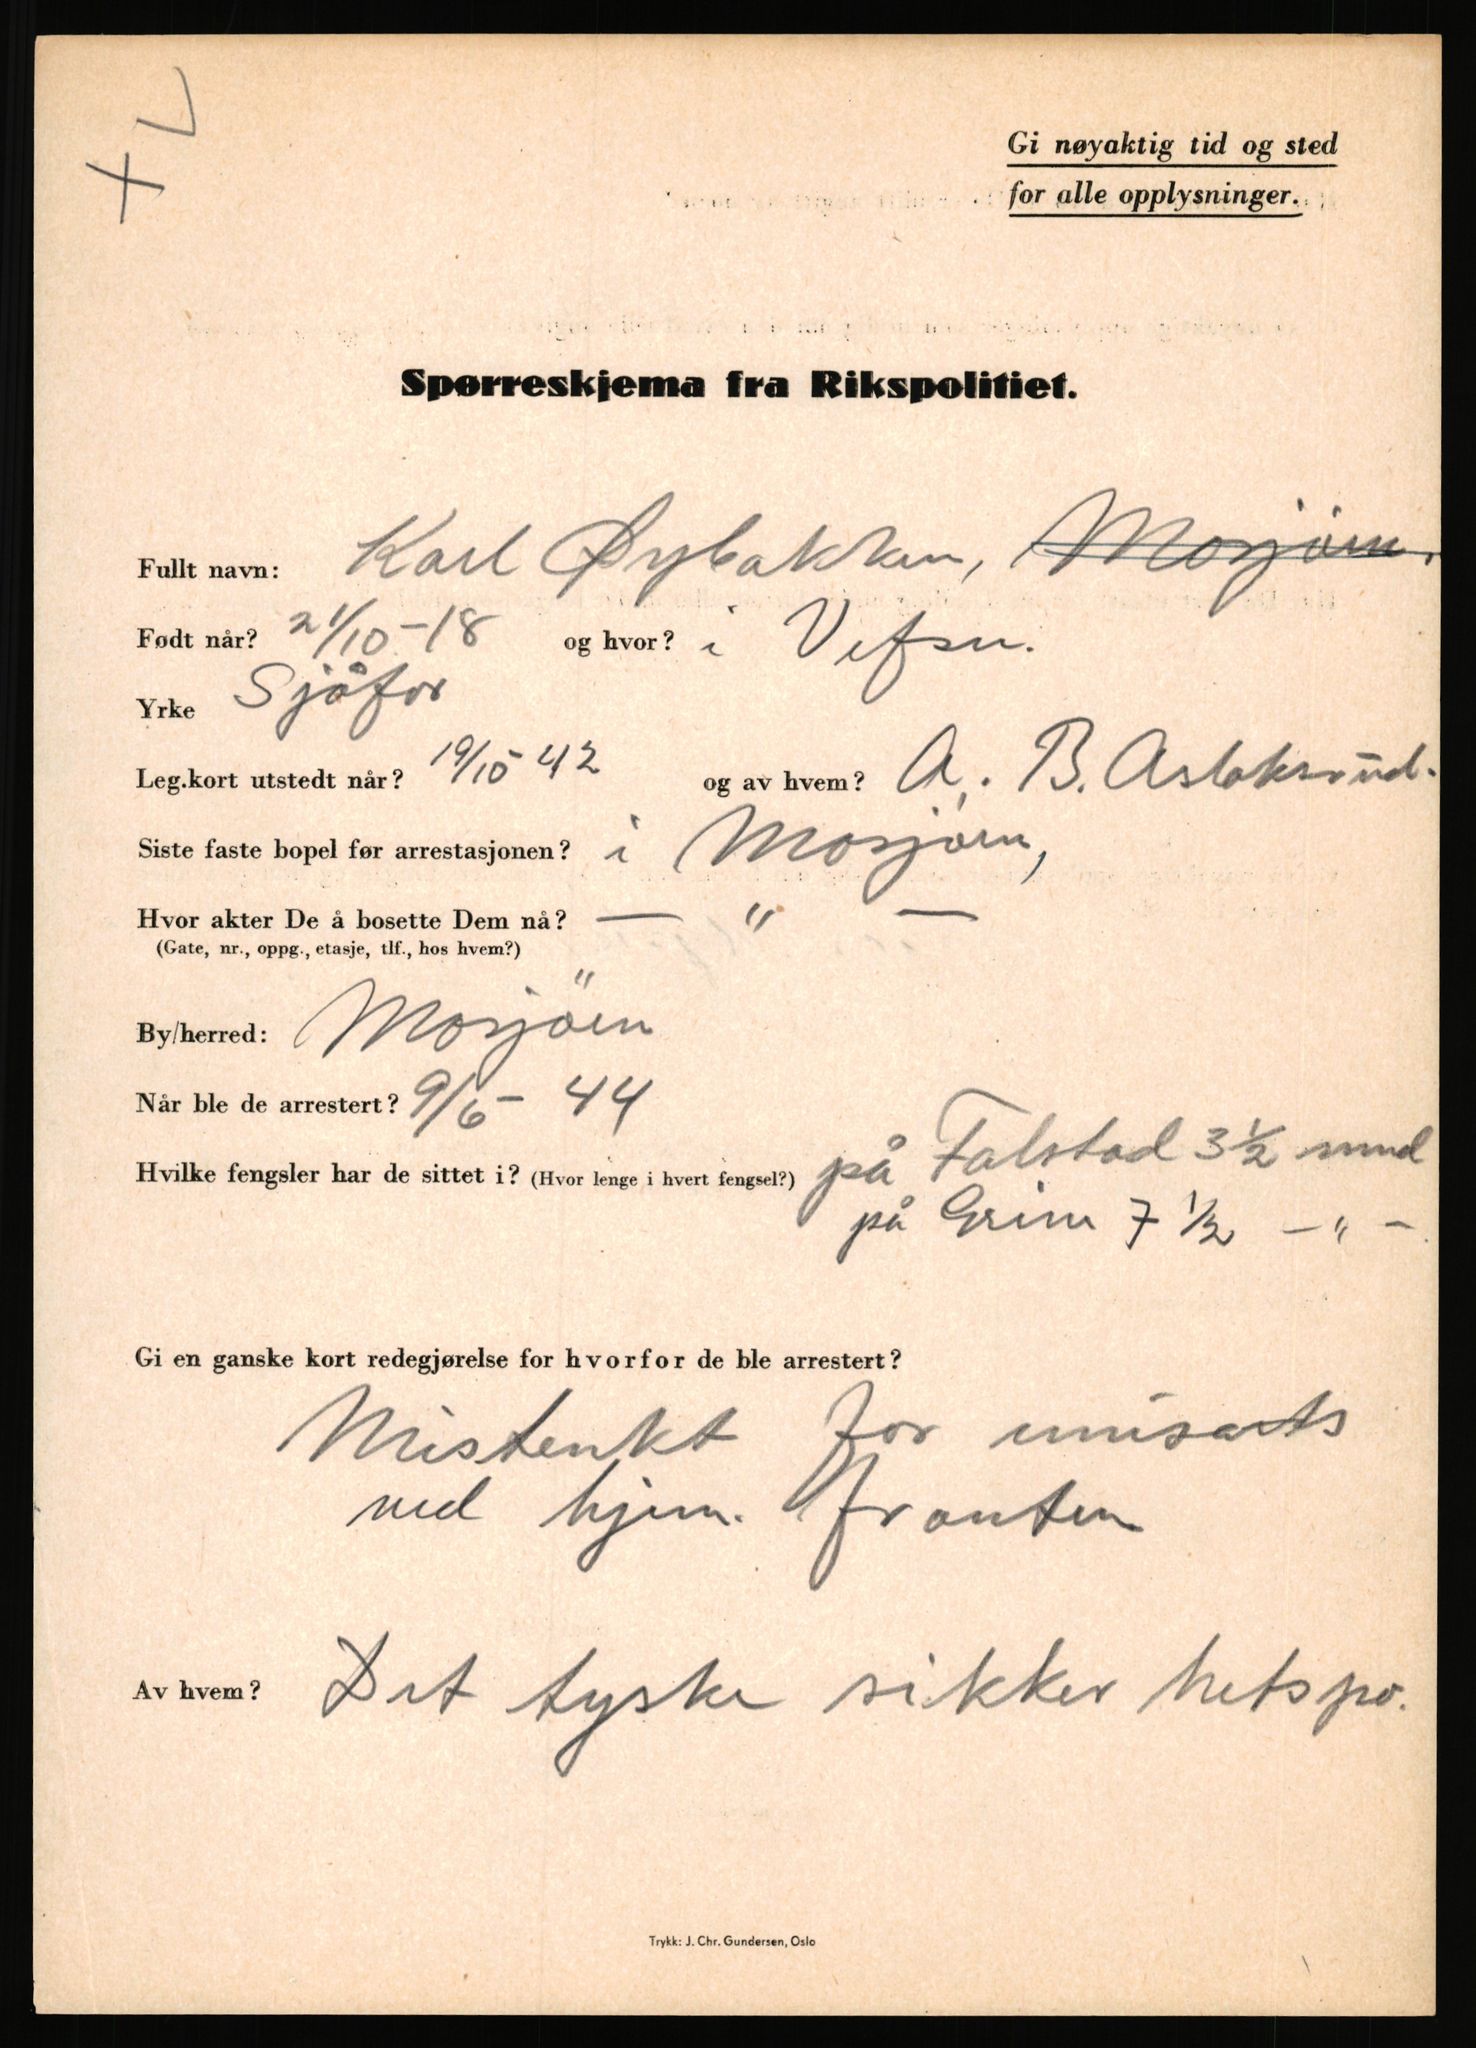 + L
Gi nøyaktig tid og sted
for alle opplysninger.
Spørreskjema fra Rikspolitiet.
Fullt navn: Karl Øybakken, Mosjöen.
Født når? 21/10-18 og hvor? i Vefsn.
Yrke Sjåför
Leg.kort utstedt når? 19/10-42 og av hvem? A. B. Aslaksrud.
Siste faste bopel før arrestasjonen? i Mosjöen,
Hvor akter De å bosette Dem nå? — " —
(Gate, nr., oppg., etasje, tlf., hos hvem?)
By/herred: Mosjöen
Når ble de arrestert? 9/6-44
Hvilke fengsler har de sittet i? (Hvor lenge i hvert fengsel?) på Falstad 3 1/2 mnd
på Grini 7 1/2 — " —
Gi en ganske kort redegjørelse for hvorfor de ble arrestert?
Mistenkt for
ved hjem. fronten
Av hvem? Det tyske sikker hetspo.
Trykk: J. Chr. Gundersen, Oslo